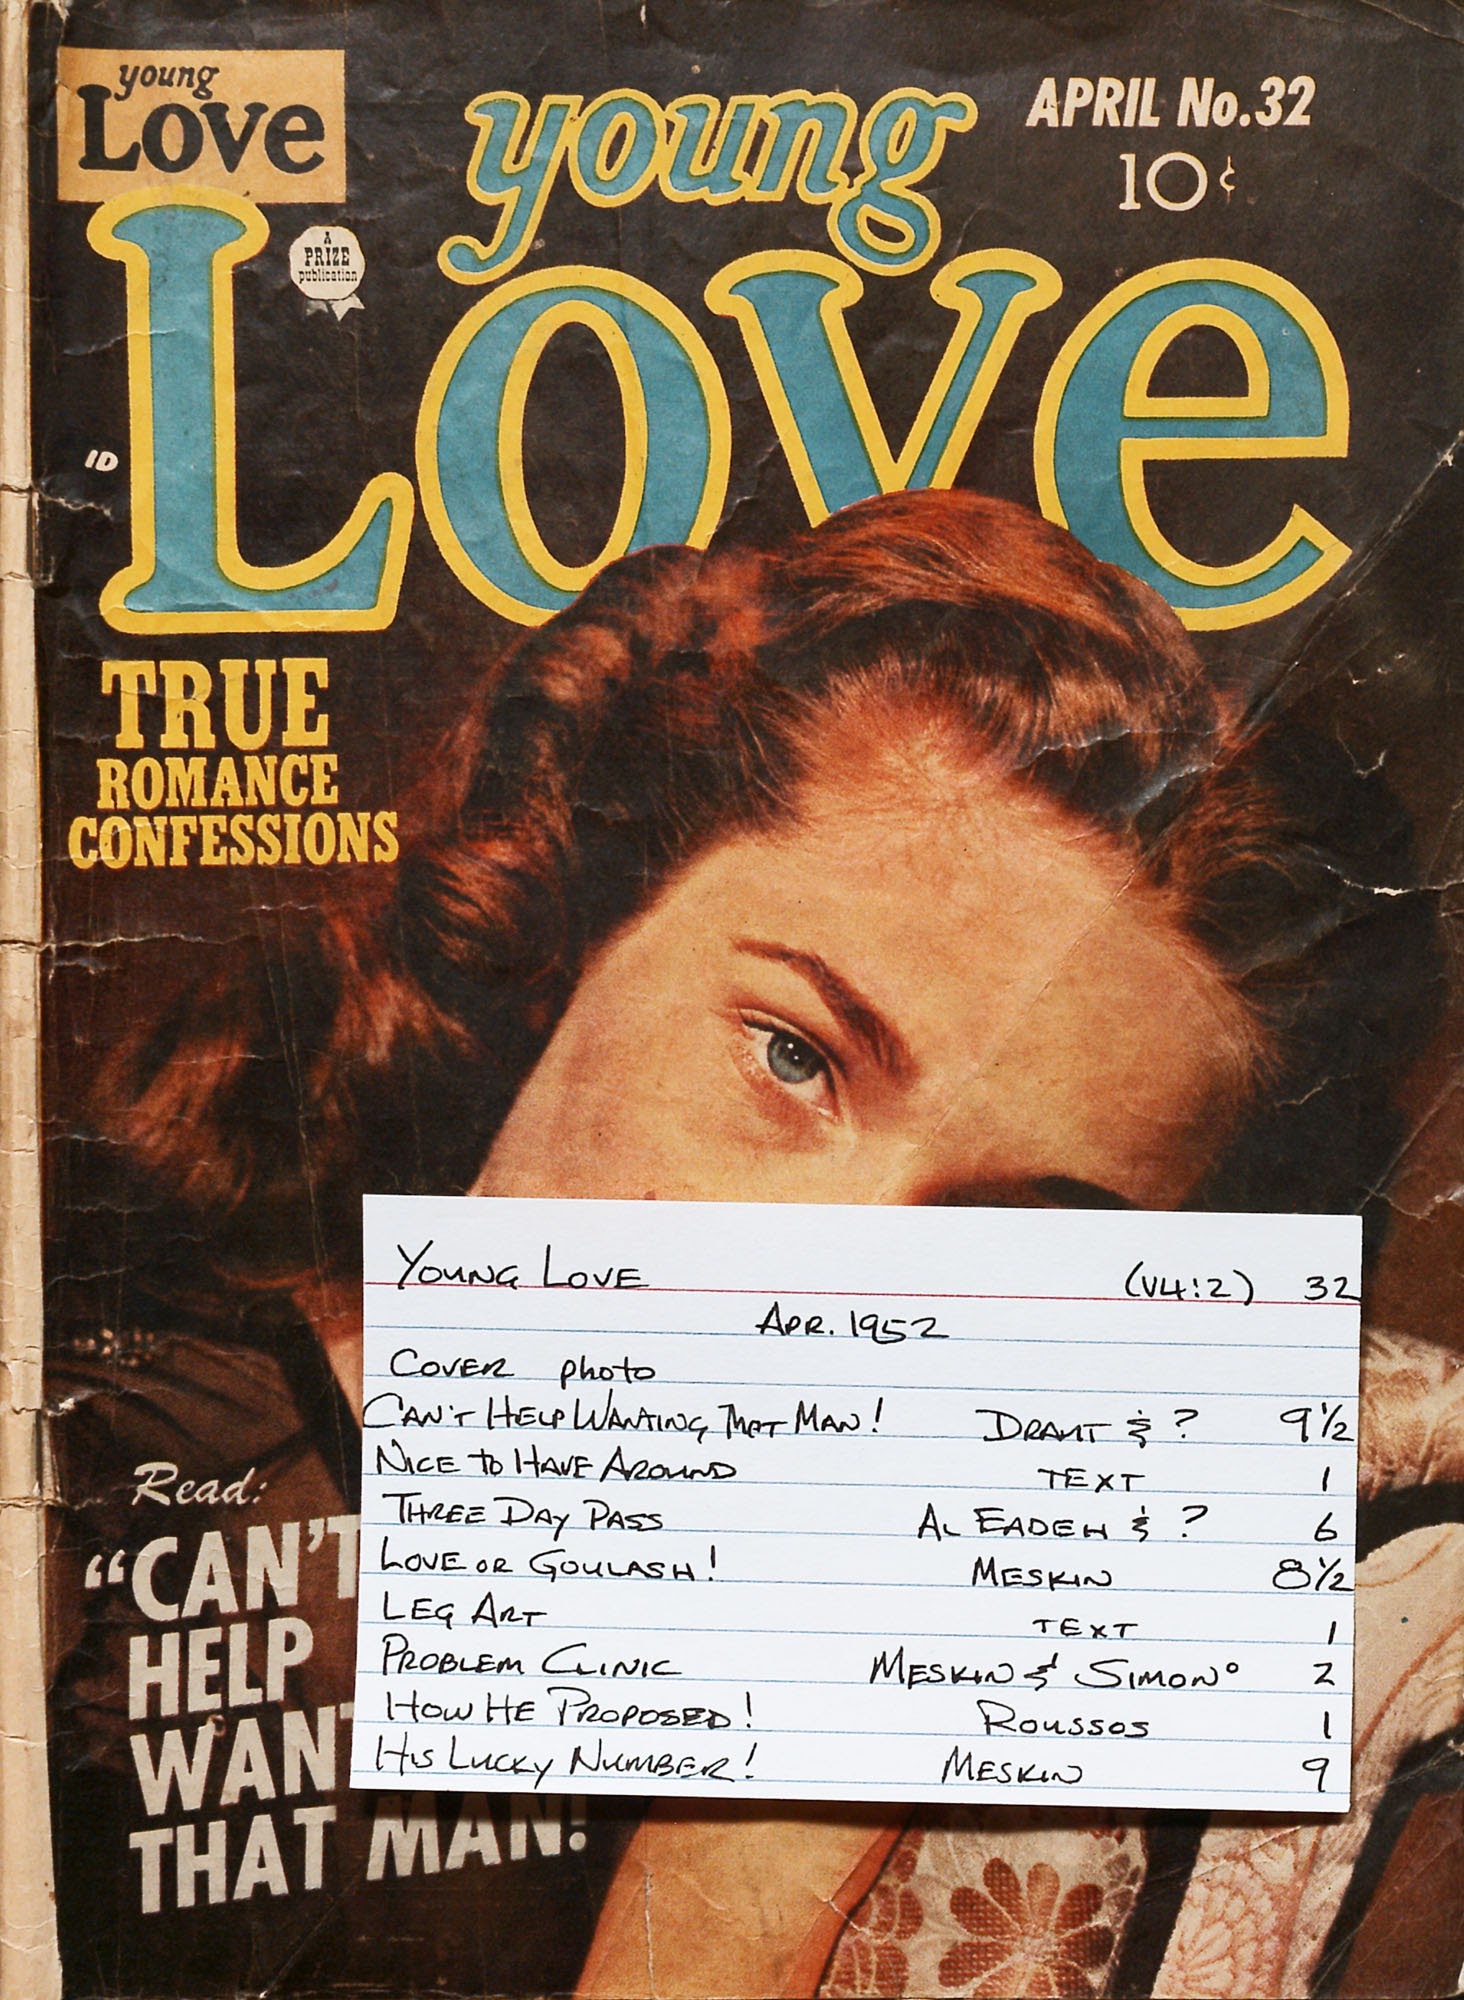 young
Love
young
Love
APRIL No.32
10¢
A
PRIZE
publication
ID
TRUE
ROMANCE
CONFESSIONS
Read:
"CAN'T
HELP
WANT
THAT MAN!
YOUNG LOVE (V4:2) 32
APR. 1952
COVER photo
CAN'T HELP WANTING THAT MAN! DRAUT & ? 9 1/2
NICE TO HAVE AROUND TEXT 1
THREE DAY PASS AL EADEH & ? 6
LOVE OR GOULASH! MESKIN 8 1/2
LEG ART TEXT 1
PROBLEM CLINIC MESKIN & SIMON° 2
HOW HE PROPOSED! ROUSSOS 1
HIS LUCKY NUMBER! MESKIN 9